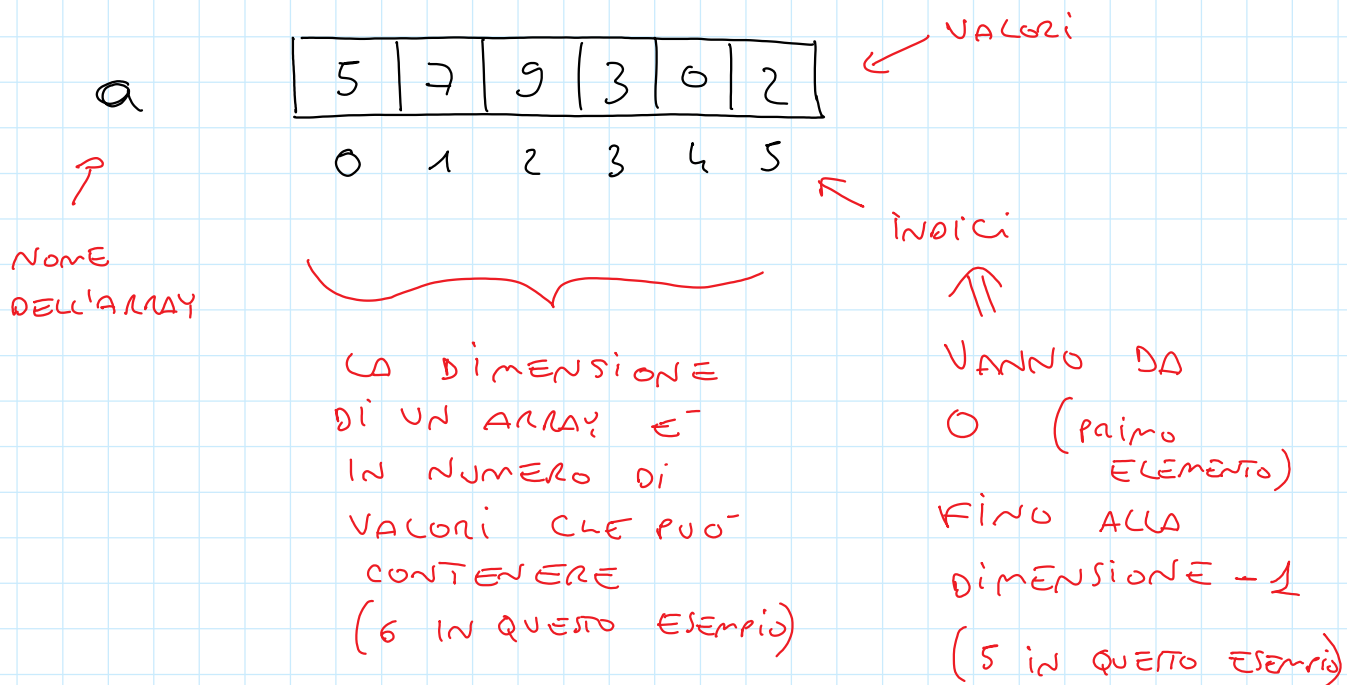 VALORI
a 5 7 9 3 0 2
0 1 2 3 4 5
INDICI
NOME
DELL'ARRAY
LA DIMENSIONE
DI UN ARRAY E'
IN NUMERO DI
VALORI CHE PUO'
CONTENERE
(6 IN QUESTO ESEMPIO)
VANNO DA
0 (PRIMO
ELEMENTO)
FINO ALLA
DIMENSIONE - 1
(5 IN QUESTO ESEMPIO)